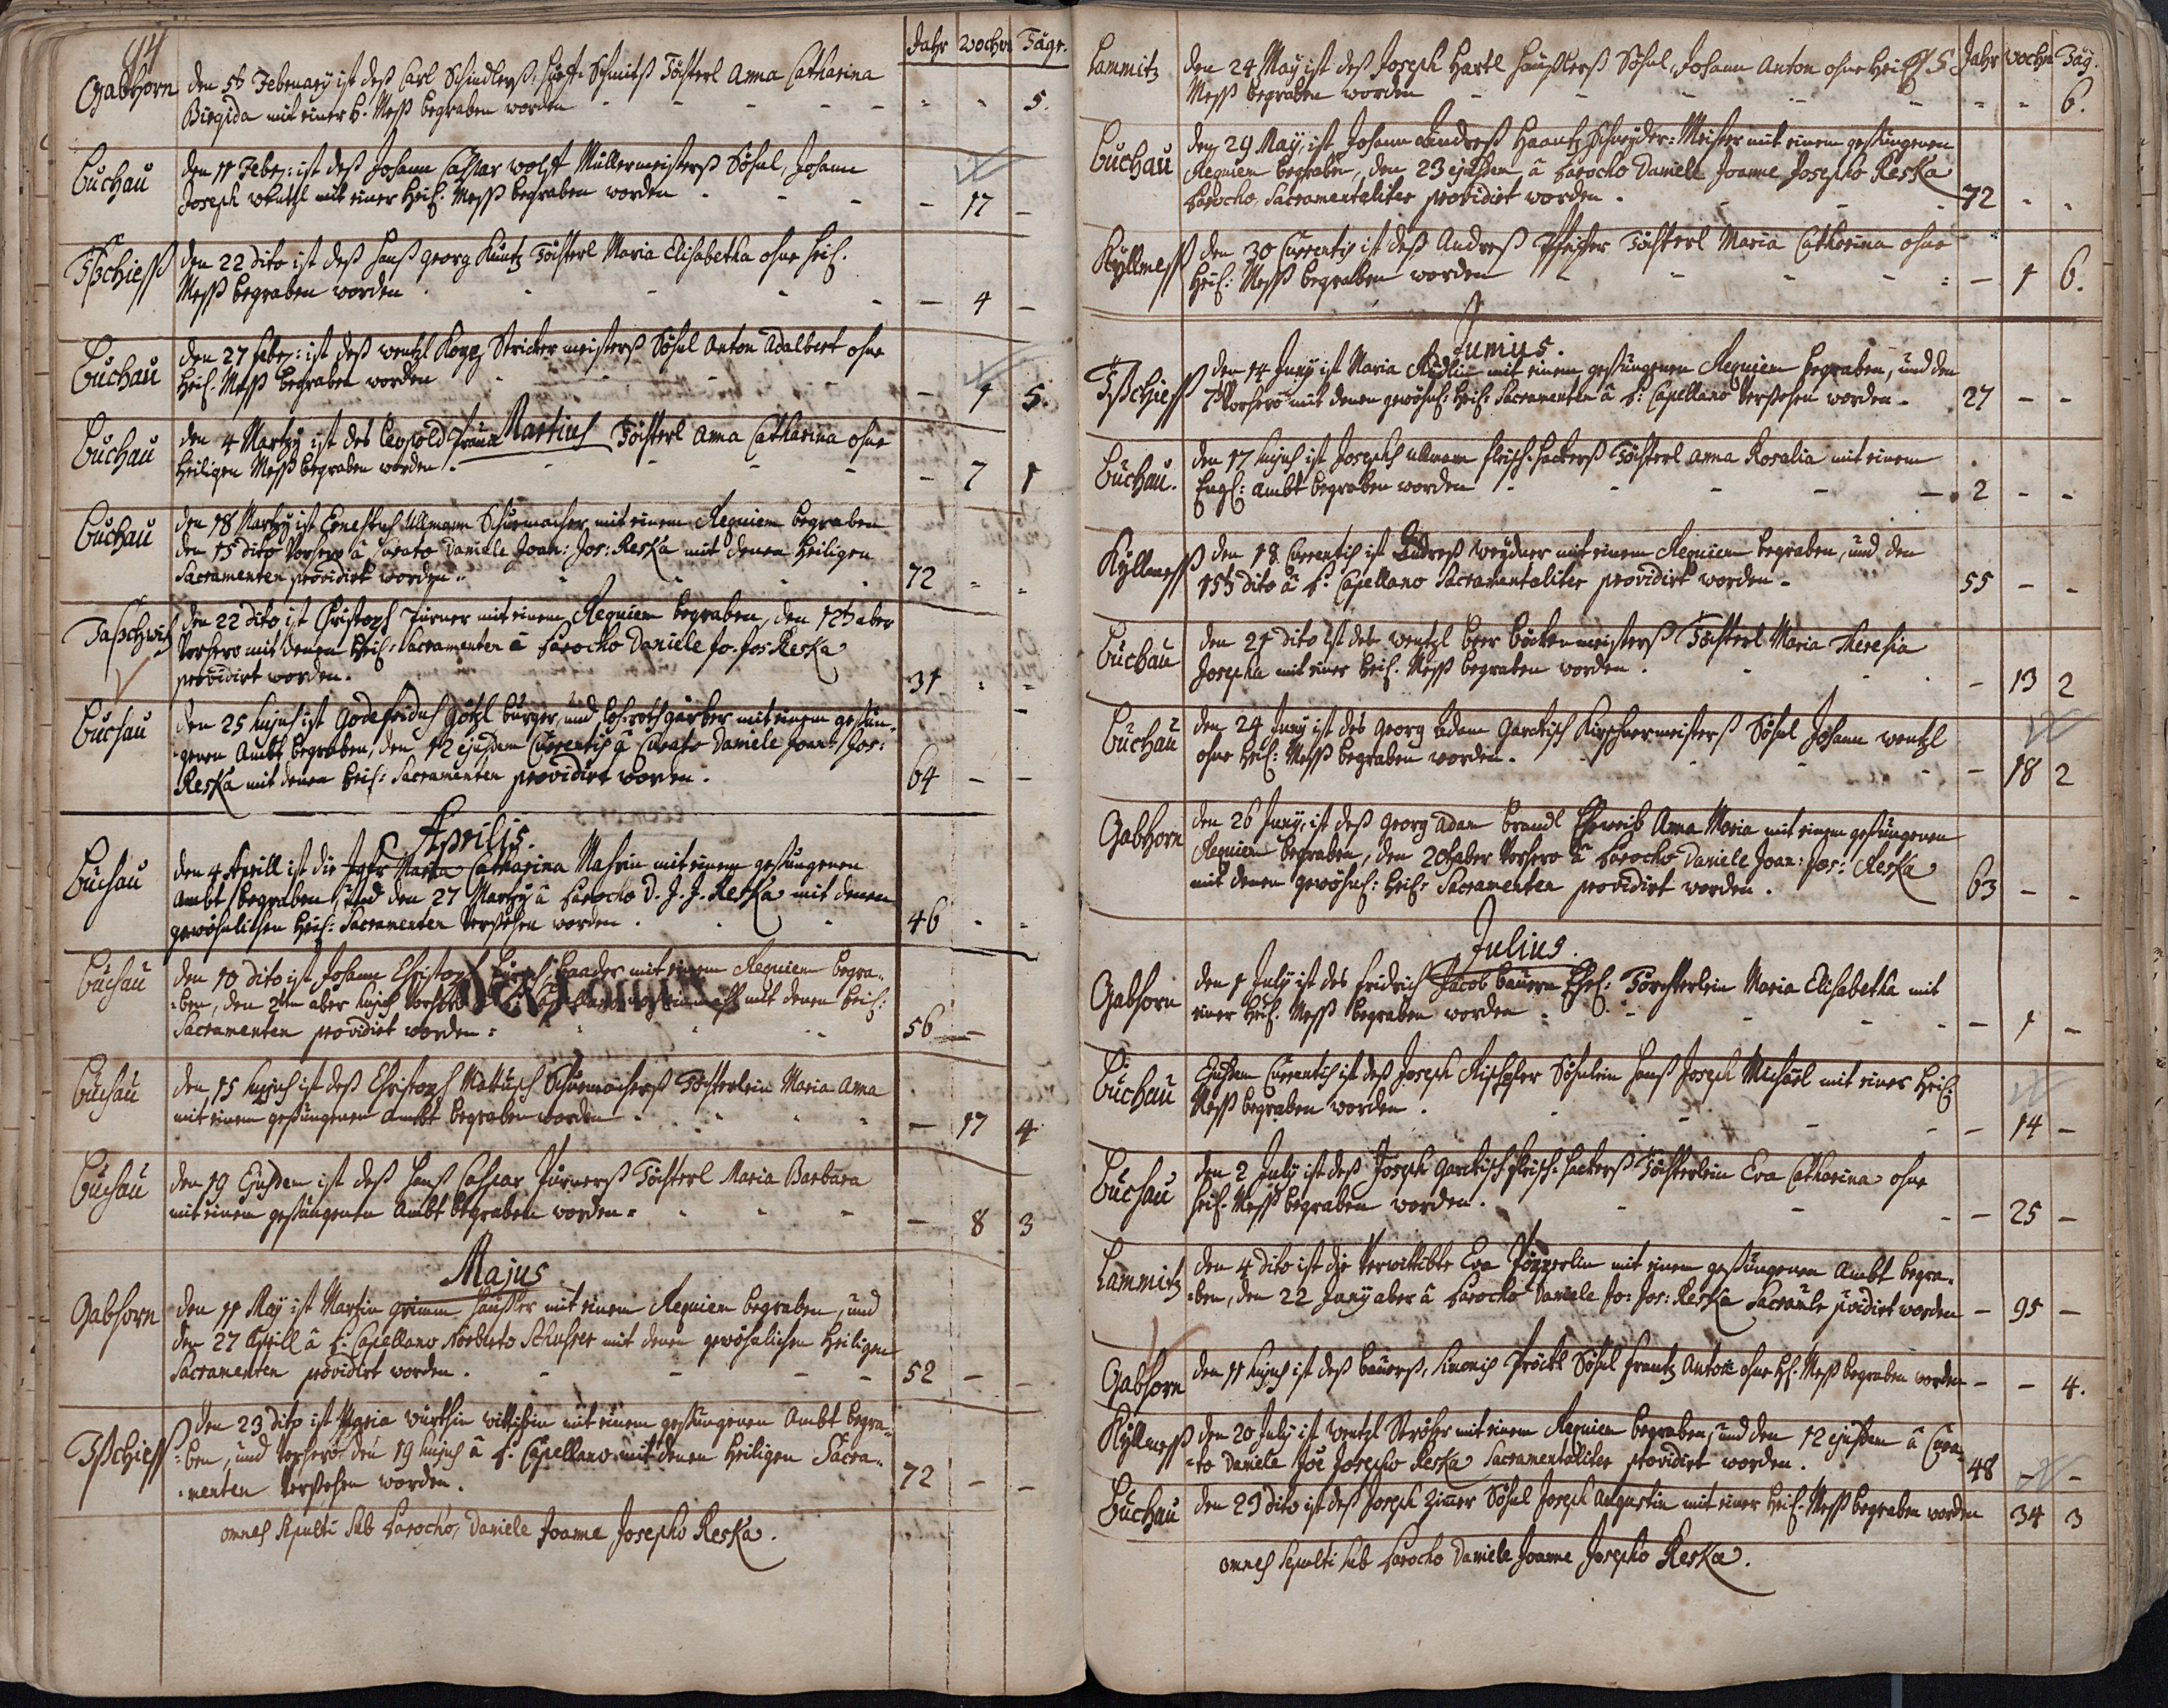 44
Jahr Wochn Täge.
Gabhorn den 5t Februarij ist deß Carl Schindlerß, Schmitß Töchterl Anna Catharina
Birgida mit einer h. Meß begraben worden - - - 5.
Buchau den 11 Febr: ist deß Johann Caspar Wolff Müllermeisterß Söhnl, Johann
Joseph mit einer Heil: Meß begraben worden - 17 -
Tßchieß den 22 dito ist deß Hanß Georg Kuntz Töchterl Maria Elisabetha ohne Heil.
Meß begraben worden - 4 -
Buchau den 27 febr: ist deß Wentzl Kopp, Strickermeisterß Söhnl Anton Adalbert ohne
Heil: Meß begraben worden - 1 5.
Martius
Buchau den 4 Martij ist des Leopold Töchterl Anna Catharina ohne
Heiligen Meß begraben worden. - 7 1
Buchau den 18 Martij ist Ernestus Ullmann Schumacher mit einem Requiem begraben
den 15 dito Vorhero â Curato Daniele Joan: Jos: Reska mit denen Heiligen
Sacramenten providirt worden. 72 - -
Taschwitz den 22 dito ist Christoph Turner mit einem Requiem begraben, den 12t aber
Vorhero mit denen Heil: Sacramenten â Parocho Daniele Jo. Jos Reska
providirt worden. 31 - -
Buchau den 25 hujus ist Godefridus Götzl burger, und Lohrothgärber mit einem gesun-
genen Ambt begraben, den 12 ejusdem Currentis â Curato Daniele Joan: Jos:
Reska mit denen Heil: Sacramenten providirt worden. 64 - -
Aprilis.
Buchau den 4 Aprill ist die Jgfr Maria Catharina mit einem gesungenen
Ambt begraben, und den 27 Martij â Parocho D. J. J. Reska mit denen
gewöhnlichen Heil: Sacramenten Versehen worden. 46 - -
Buchau den 10 dito ist Johann Christoph Baader mit einem Requiem begra-
ben, den 2ten aber hujus Vorhero mit denen Heil:
Sacramenten providirt worden: 56 -
Buchau den 15 hujus ist deß Christoph Mattusch Schumacherß Töchterlein Maria Anna
mit einem gesungenen Ambt begraben worden - 17 4
Buchau den 19 Ejusdem ist deß Hanß Caspar Turnerß Töchterl Maria Barbara
mit einem gesungenen Ambt begraben worden - 8 3
Majus
Gabhorn den 11 May ist Martin Grimm Häußler mit einem Requiem begraben, und
den 27 Aprill â P: Capellano Norberto Schuster mit denen gewöhnlichen Heiligen
Sacramenten providirt worden. 52 - -
Tßchieß den 23 dito ist Maria Wurthin Wittibin mit einem gesungenen Ambt begra-
ben, und Vorhero den 19 hujus â P: Capellano mit denen Heiligen Sacra-
menten Versehen worden. 72 - -
omnes sepulti sub Parocho, Daniele Joanne Josepho Reska.
Jahr Wochn Täg.
Lammitz den 24 May ist deß Joseph Hartl Häußlerß Söhnl, Johann Anton ohne Heil:
Meß begraben worden - - 6.
Buchau den 29 May ist Johann Andreß Haantz, Schneyder-Meister mit einem gesungenen
Requiem begraben, den 23 ejusdem â Parocho Daniele Joanne Josepho Reska
Parocho Sacramentaliter providirt worden. 72 - -
Kyllmeß den 30 Currentis ist deß Andreß Pfeiffer Töchterl Maria Catharina ohne
Heil: Meß begraben worden - 1 6.
Junius.
Tßchieß den 14 Juny ist Maria mit einem gesungenen Requiem begraben, und den
Vorhero mit denen gewöhnl: Heil: Sacramenten â P: Capellano Versehen worden. 27 - -
Buchau. den 17 hujus ist Josephs Ullmann fleischhackerß Töchterl Anna Rosalia mit einem
Engl: Ambt begraben worden 2 - -
Kyllmeß den 18 Currentis ist Andreß Weydner mit einem Requiem begraben, und den
15t dito â P: Capellano Sacramentaliter providirt worden. 55 - -
Buchau den 21 dito ist des Wentzl beer böckenmeisterß Töchterl Maria Theresia
Josepha mit einer Heil. Meß begraben worden. - 13 2
Buchau den 24 Juny ist des Georg Adam Garckisch Kirschnermeisterß Söhnl Johann Wentzl
ohne Heil: Meß begraben worden. - 18 2
Gabhorn den 26 Juny ist deß Georg Adam brandl Eheweib Anna Maria mit einem gesungenen
Requiem begraben, den 20t aber Vorhero â Parocho Daniele Joan: Jos: Reska
mit denen gewöhnl: Heil: Sacramenten providirt worden. 63 - -
Julius.
Gabhorn den 1 July ist des Fridrich Jacob bauern Ehel: Töchterlein Maria Elisabetha mit
einer Heil. Meß begraben worden - 1 -
Buchau Ejusdem Currentis ist deß Joseph Söhnlein Hanß Joseph Michael mit einer Heil:
Meß begraben worden. - 14 -
Buchau den 2 July ist deß Joseph Garckisch fleischhackerß Töchterlein Eva Catharina ohne
Heil. Meß begraben worden. - 25 -
Lammitz den 4 dito ist die Verwittibte Eva mit einem gesungenen Ambt begra-
ben, den 22 Juny aber â Parocho Daniele Jo: Jos: Reska providirt worden - 95 -
Gabhorn den 11 hujus ist deß bauerß, Simonis Pröckl Söhnl Frantz Anton ohne Hl. Meß begraben worden - - 4.
Kyllmeß den 20 July ist Wentzl Ströher mit einem Requiem begraben, und den 12 ejusdem â Cura-
to Daniele Joe Josepho Reska Sacramentaliter providirt worden. 48 - -
Buchau den 29 dito ist deß Joseph Zimer Söhnl Joseph Augustin mit einer Heil. Meß begraben worden 34 3
omnes sepulti sub Parocho Daniele Joanne Josepho Reska.